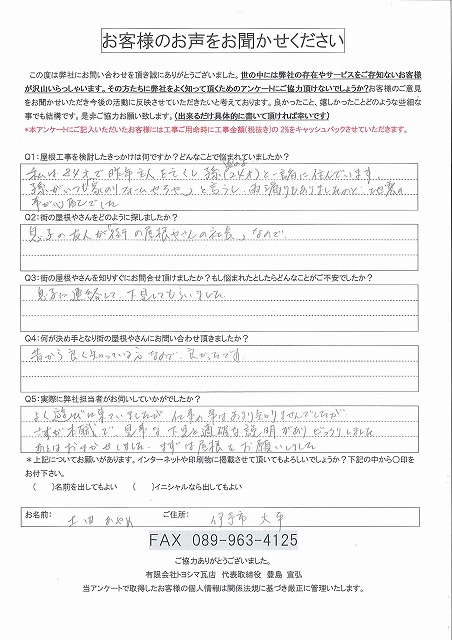 お客様のお声をお聞かせください
この度は弊社にお問い合わせを頂き誠にありがとうございました。世の中には弊社の存在やサービスをご存知ないお客様
が沢山いらっしゃいます。その方たちに弊社をよく知って頂くためのアンケートにご協力頂けないでしょうか?お客様のご意見
をお聞かせいただき今後の活動に反映させていただきたいと考えております。良かったこと、嬉しかったことどのような些細な
事でも結構です。是非ご協力お願い致します。(出来るだけ具体的に書いて頂ければ幸いです)
*本アンケートにご記入いただいたお客様には工事ご用命時に工事金額(税抜き)の 2%をキャッシュバックさせていただきます。
Q1:屋根工事を検討したきっかけは何ですか?どんなことで悩まれていましたか?
私は84才で昨年主人を亡くし孫(24才)と一緒に住んでいます。
孫がいつも家のリフォームやろやと言うし、雨漏りもありましたのと、地震の
事が心配でした
Q2:街の屋根やさんをどのように探しましたか?
息子の友人が「街の屋根やさんの社長」なので
Q3:街の屋根やさんを知りすぐにお問合せ頂けましたか?もし悩まれたとしたらどんなことがご不安でしたか?
息子に連絡して、下見してもらいました
Q4:何が決め手となり街の屋根やさんにお問い合わせ頂きましたか?
昔から良く知っている方なので、良かったです
Q5:実際に弊社担当者がお伺いしていかがでしたか?
よく遊びに来ていましたが 仕事の事はあまり知りませんでしたが
さすが本職で、見事な下見と適確な説明があり ビックリしました
あとはおまかせしました。まずは屋根をお願いしました
*上記についてお願いがあります。インターネットや印刷物に掲載させて頂いてもよろしいでしょうか?下記の中から〇印を
お付下さい。
( )名前を出してもよい ( )イニシャルなら出してもよい
お名前: ご住所: 伊予市
FAX 089-963-4125
ご協力ありがとうございました。
有限会社トヨシマ瓦店 代表取締役 豊島 宣弘
当アンケートで取得したお客様の個人情報は関係法規に基づき厳正に管理いたします。